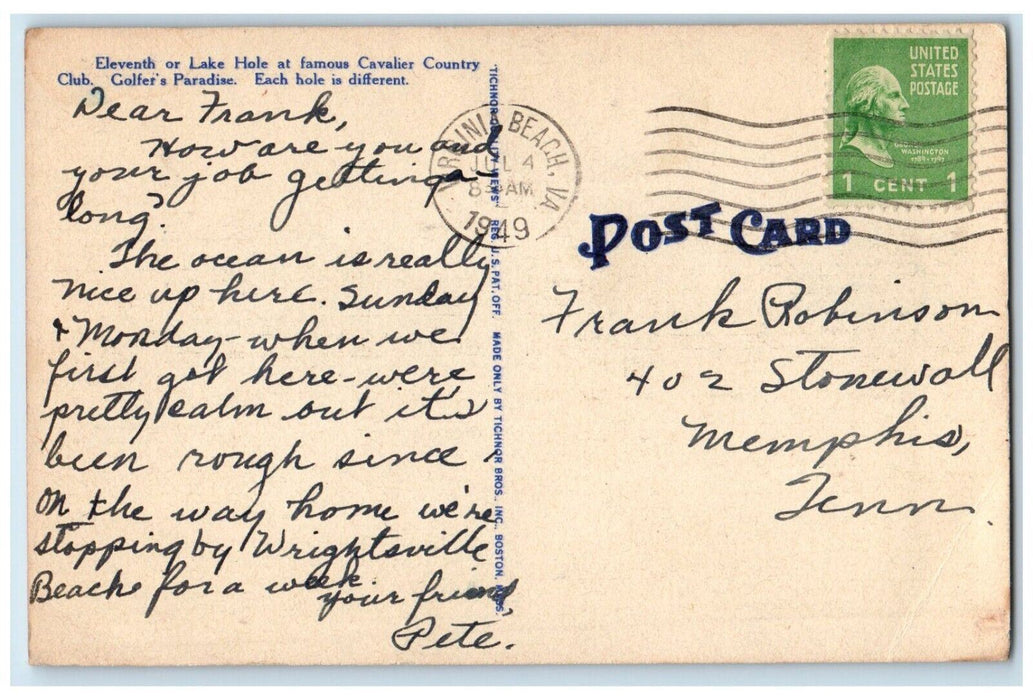 Eleventh or Lake Hole at famous Cavalier Country
Club. Golfer's Paradise. Each hole is different.
Dear Frank,
How are you and
your job getting a-
long?
The ocean is really
nice up here. Sunday
& Monday - when we
first got here - were
pretty calm but it's
been rough since.
On the way home we're
stopping by Wrightsville
Beach for a week.
your friend,
Pete.
REG. U.S. PAT. OFF. MADE ONLY BY TICHNOR BROS. INC., BOSTON, MASS.
VIRGINIA BEACH, VA
JUL 4
AM
1949
UNITED
STATES
POSTAGE
WASHINGTON
1789-1797
1 CENT 1
POST CARD
Frank Robinson
402 Stonewall
Memphis,
Tenn.